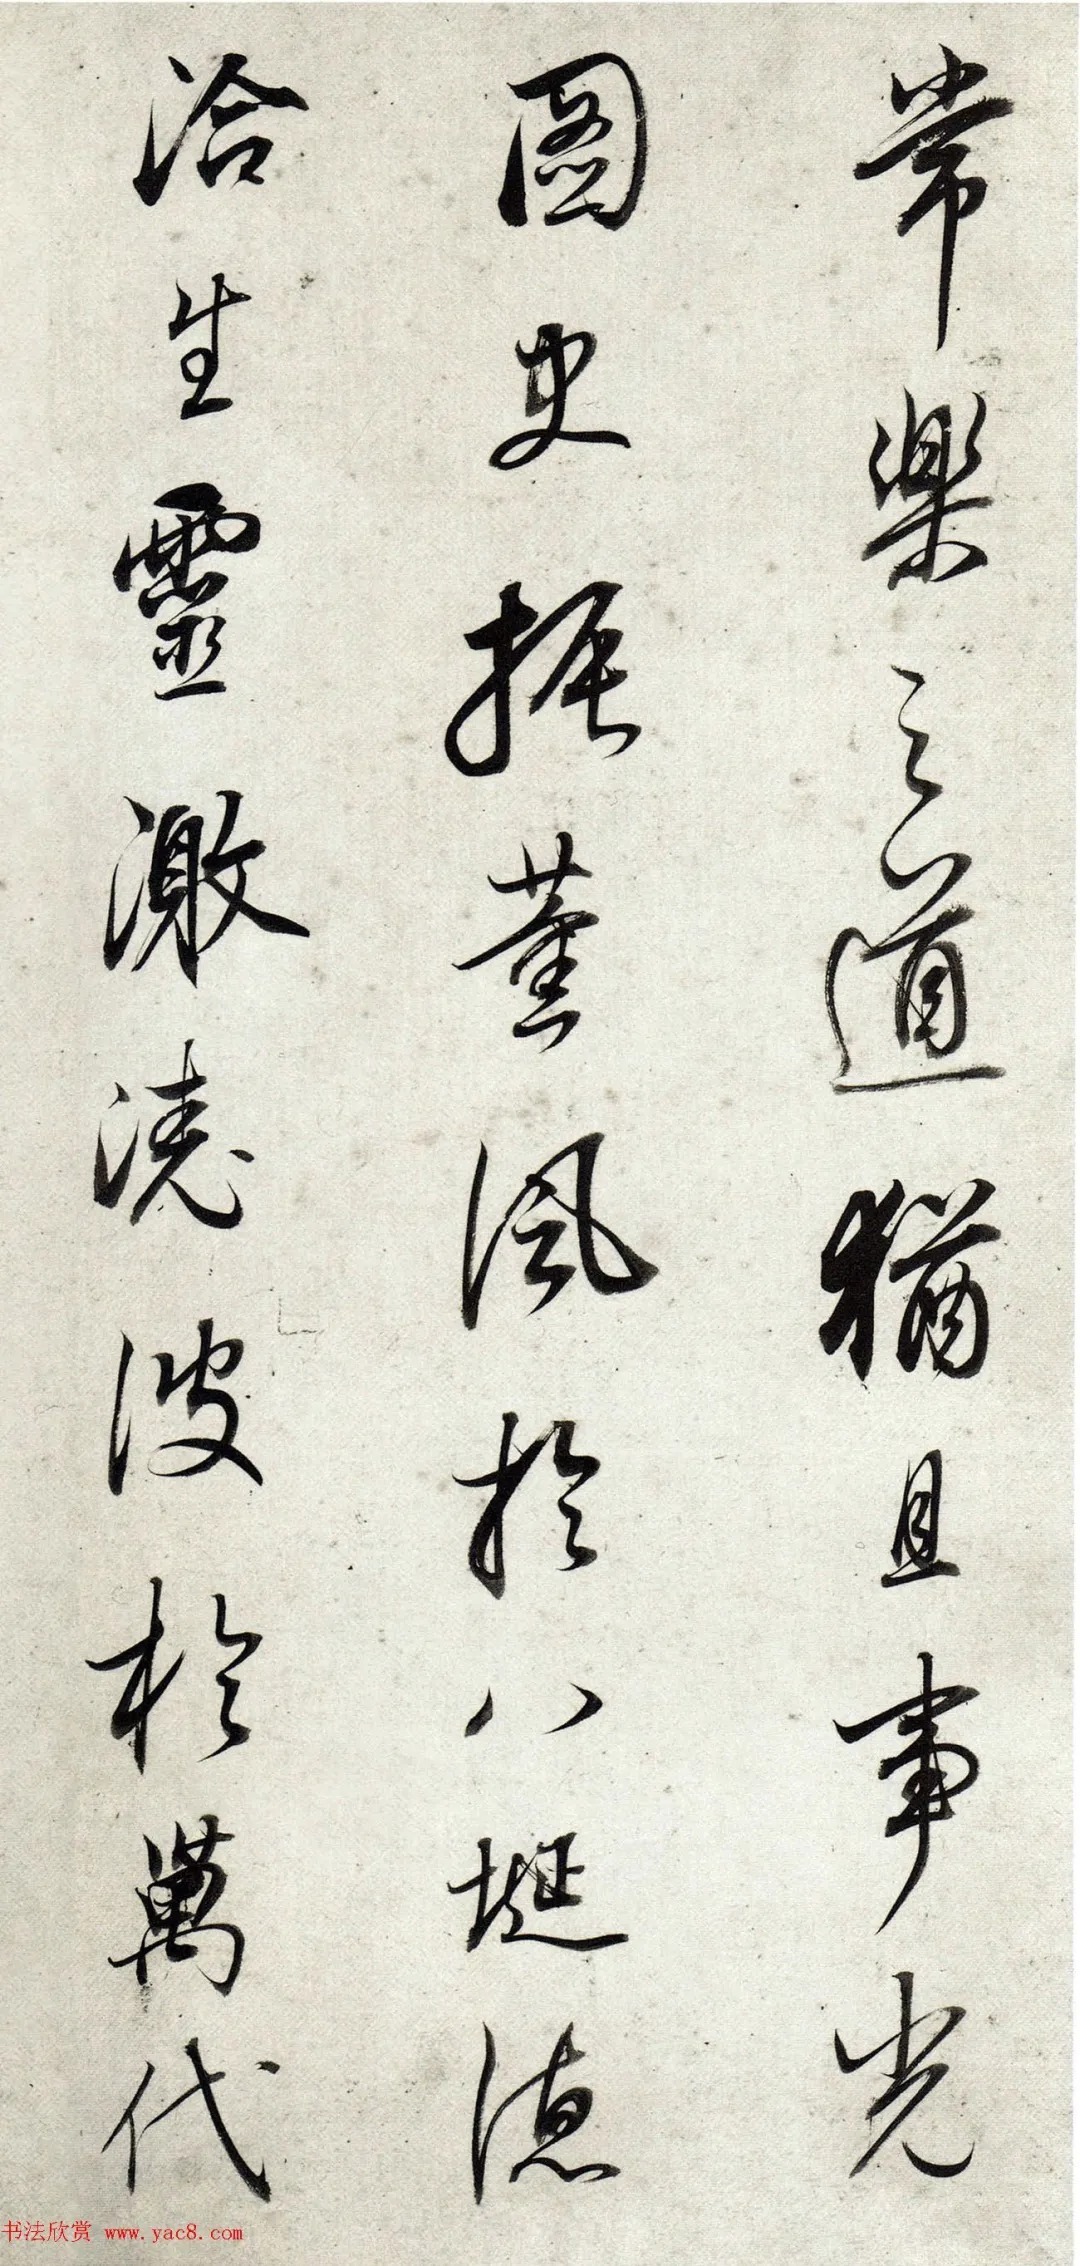 常樂之道猶且事光
圖史振薰風於八埏德
洽生靈激澆波於萬代
书法欣赏 www.yac8.com